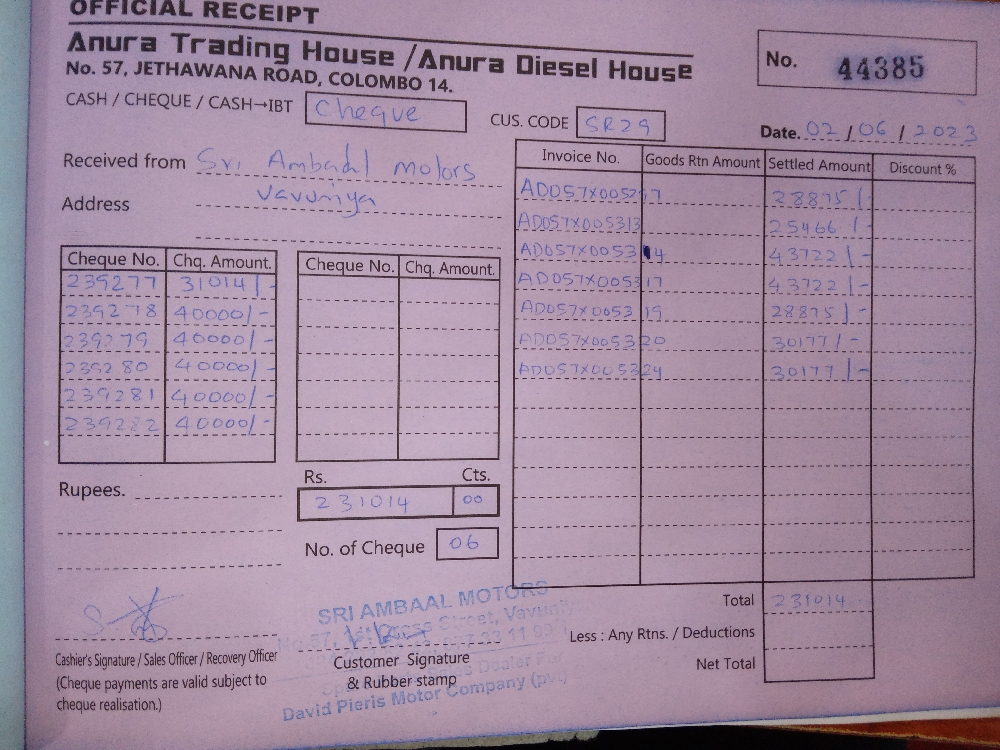 OFFICIAL RECEIPT
Anura Trading House / Anura Diesel House
No. 57, JETHAWANA ROAD, COLOMBO 14.
No. 44385
CASH / CHEQUE / CASH→IBT Cheque
CUS. CODE SR29
Date. 02 / 06 / 2023
Received from Sri Ambadal motors
Address Vavuniya
Cheque No. Chq. Amount.
239277 31014/-
239278 40000/-
239279 40000/-
239280 40000/-
239281 40000/-
239282 40000/-
Cheque No. Chq. Amount.
Rupees.
Rs. Cts.
231014 00
No. of Cheque 06
Invoice No. Goods Rtn Amount Settled Amount Discount %
AD057X005267 28875/-
AD057X005313 25466/-
AD057X005314 43722/-
AD057X005317 43722/-
AD057X005319 28875/-
AD057X005320 30177/-
AD057X005324 30177/-
Total 231014
Less : Any Rtns. / Deductions
Net Total
Cashier's Signature / Sales Officer / Recovery Officer
(Cheque payments are valid subject to
cheque realisation.)
SRI AMBAAL MOTORS
No. 57, 1st Cross Street, Vavuniya
Customer Signature
& Rubber stamp
David Pieris Motor Company (pvt)